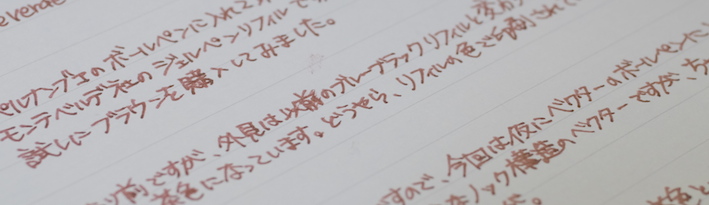 everde
ペルナンブコのボールペンに入れてみ
モンテベルデ社のジェルペンリフィルで
試しにブラウンを購入してみました。
り前ですが、外見は以前のブルーブラックリフィルと変わ
茶色になっています。どうやら、リフィルの色で印刷されて
すので、今回は仮にベクターのボールペンに
ノック構造のベクターですが、